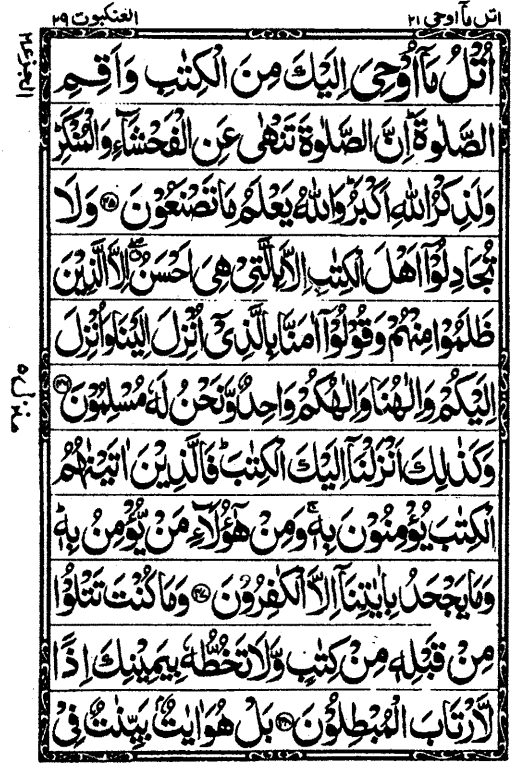 اتل مآ اوحی ۲۱
العنکبوت ۲۹
اُتْلُ مَآ اُوْحِیَ اِلَیْكَ مِنَ الْكِتٰبِ وَ اَقِمِ
الصَّلٰوةَ ؕ اِنَّ الصَّلٰوةَ تَنْهٰی عَنِ الْفَحْشَآءِ وَ الْمُنْكَرِ ؕ
وَ لَذِكْرُ اللّٰهِ اَكْبَرُ ؕ وَ اللّٰهُ یَعْلَمُ مَا تَصْنَعُوْنَ ﴿۴۵﴾ وَ لَا
تُجَادِلُوْۤا اَهْلَ الْكِتٰبِ اِلَّا بِالَّتِیْ هِیَ اَحْسَنُ ۖۗ اِلَّا الَّذِیْنَ
ظَلَمُوْا مِنْهُمْ وَ قُوْلُوْۤا اٰمَنَّا بِالَّذِیْۤ اُنْزِلَ اِلَیْنَا وَ اُنْزِلَ
اِلَیْكُمْ وَ اِلٰهُنَا وَ اِلٰهُكُمْ وَاحِدٌ وَّ نَحْنُ لَهٗ مُسْلِمُوْنَ ﴿۴۶﴾
وَ كَذٰلِكَ اَنْزَلْنَاۤ اِلَیْكَ الْكِتٰبَ ؕ فَالَّذِیْنَ اٰتَیْنٰهُمُ
الْكِتٰبَ یُؤْمِنُوْنَ بِهٖ ۚ وَ مِنْ هٰۤؤُلَآءِ مَنْ یُّؤْمِنُ بِهٖ ؕ
وَ مَا یَجْحَدُ بِاٰیٰتِنَاۤ اِلَّا الْكٰفِرُوْنَ ﴿۴۷﴾ وَ مَا كُنْتَ تَتْلُوْا
مِنْ قَبْلِهٖ مِنْ كِتٰبٍ وَّ لَا تَخُطُّهٗ بِیَمِیْنِكَ اِذًا
لَّارْتَابَ الْمُبْطِلُوْنَ ﴿۴۸﴾ بَلْ هُوَ اٰیٰتٌۢ بَیِّنٰتٌ فِیْ
منزل ۵